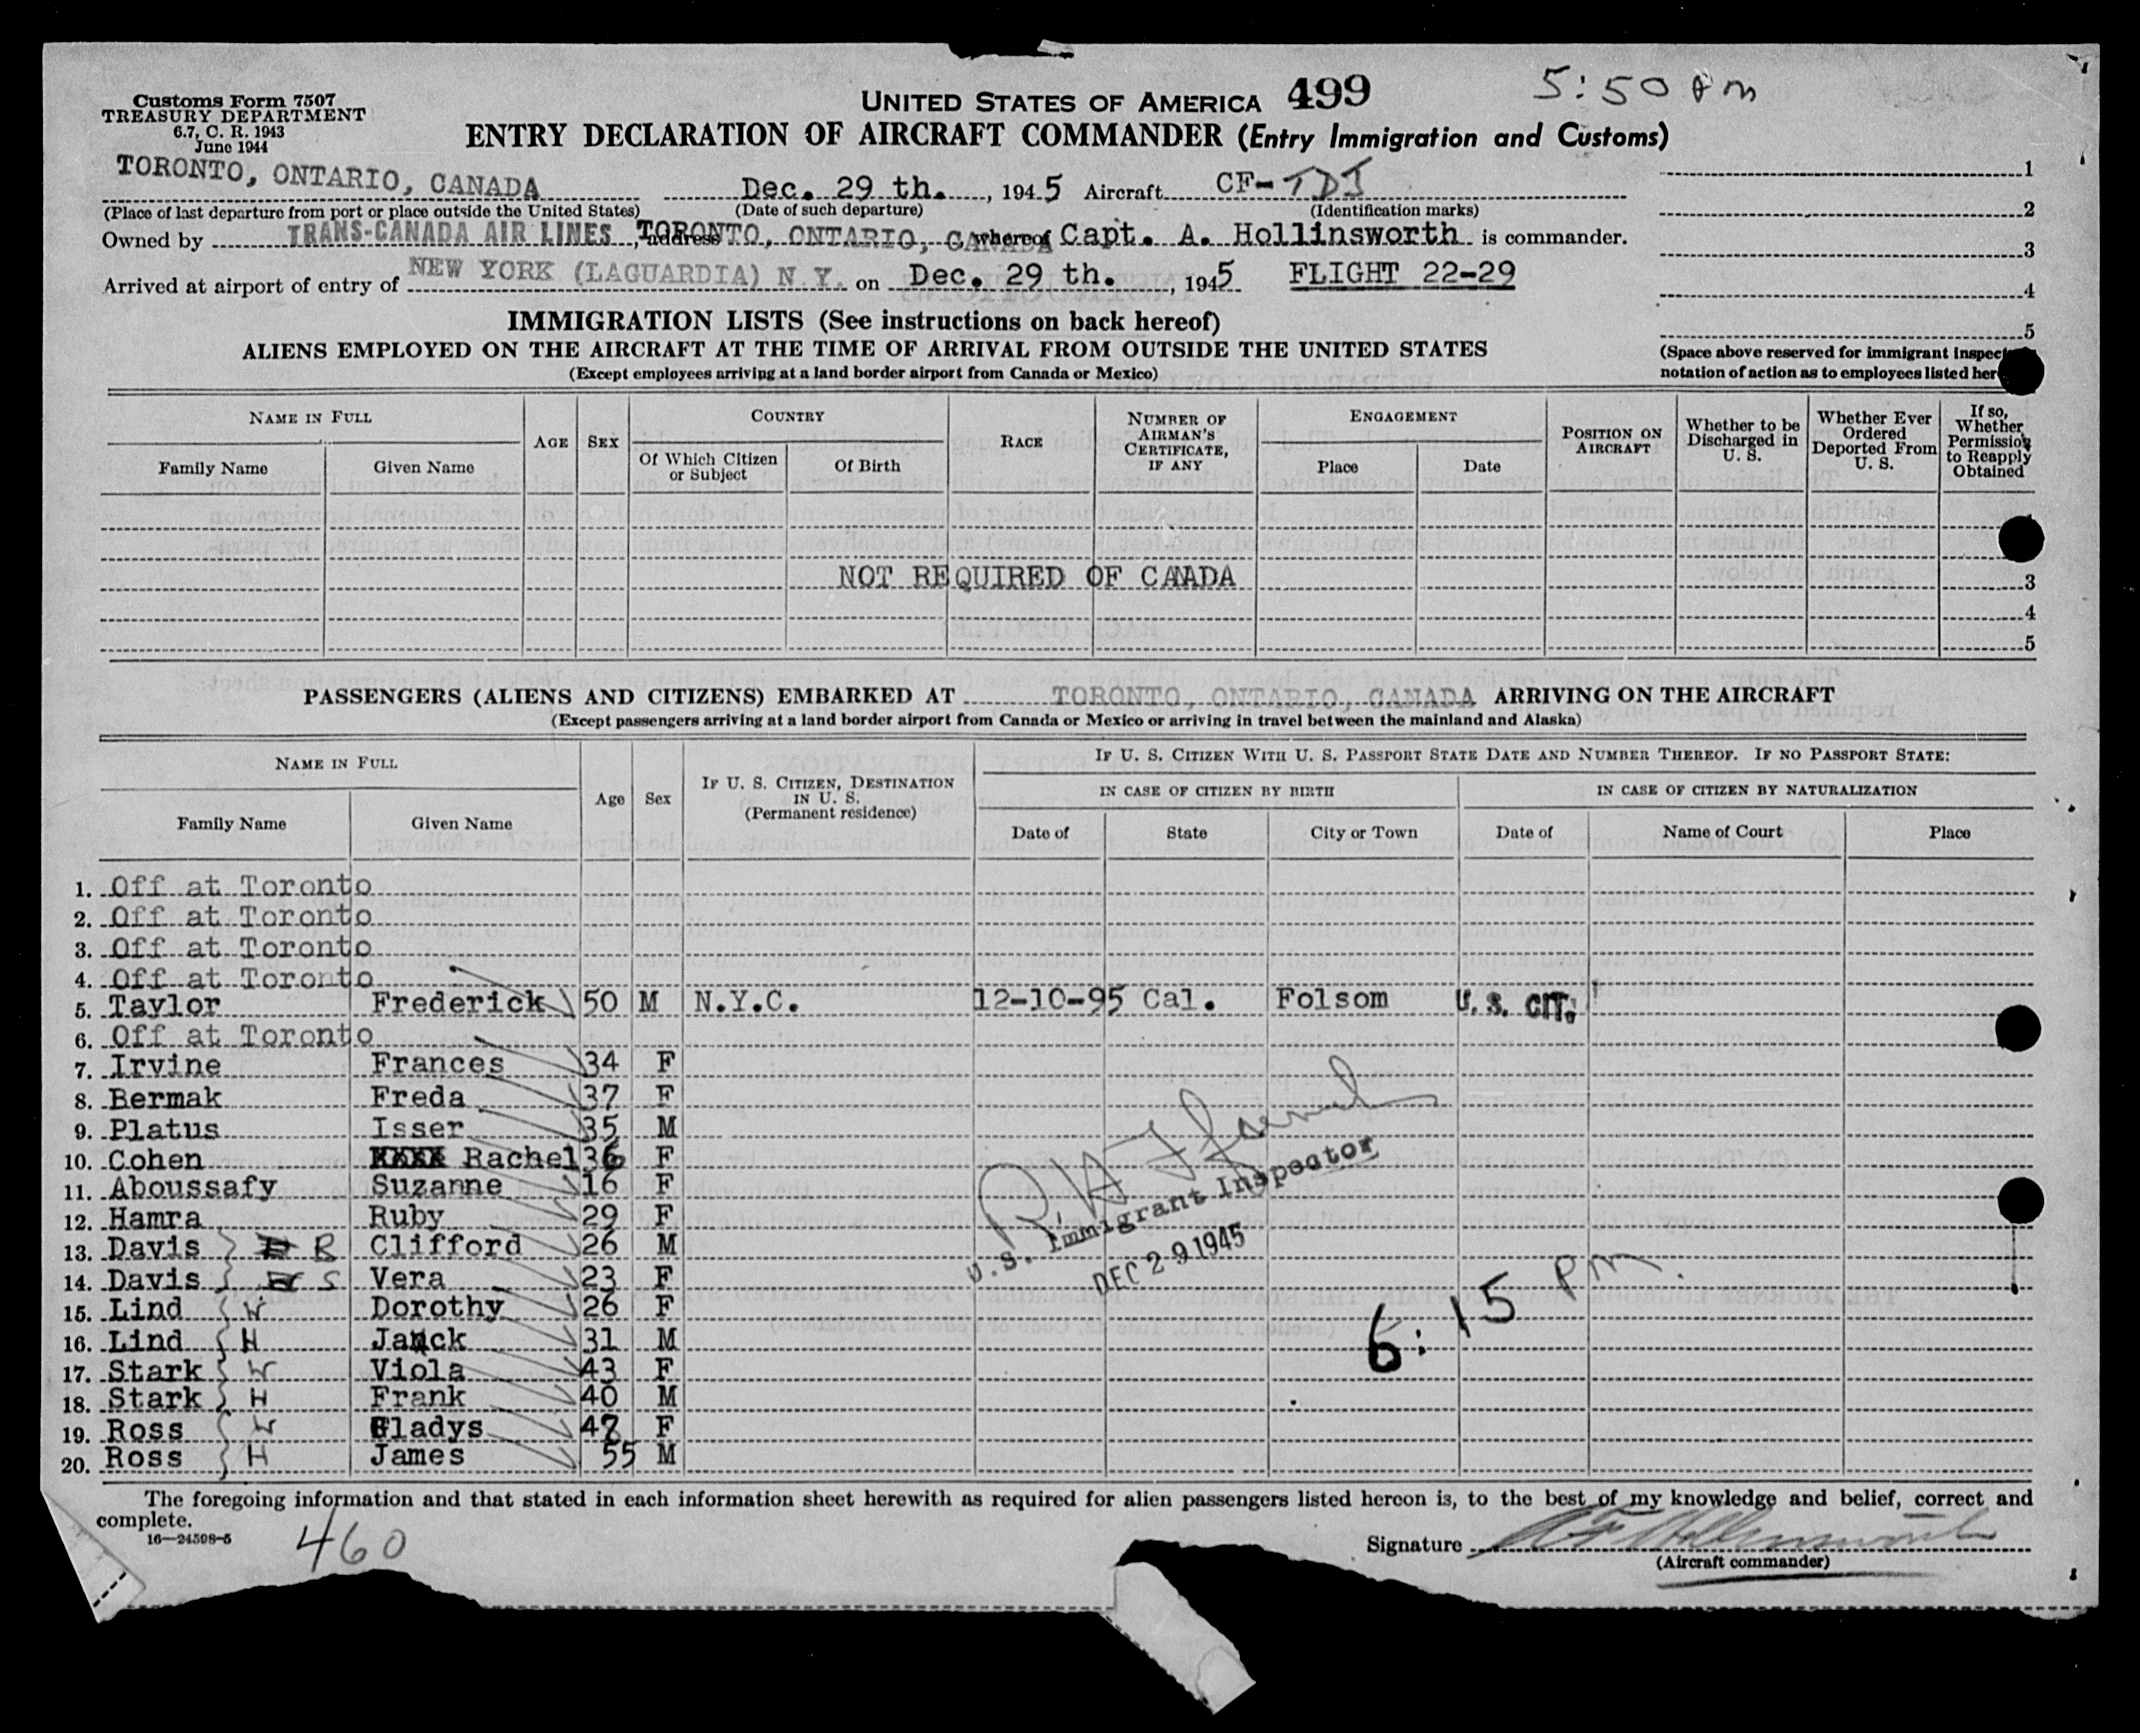 Customs Form 7507
TREASURY DEPARTMENT
6.7, C. R. 1943
June 1944
UNITED STATES OF AMERICA 499
5:50 pm
ENTRY DECLARATION OF AIRCRAFT COMMANDER (Entry Immigration and Customs)
TORONTO, ONTARIO, CANADA Dec. 29 th. , 1945 Aircraft CF-TDJ 1
(Place of last departure from port or place outside the United States) (Date of such departure) (Identification marks) 2
Owned by TRANS-CANADA AIR LINES , address TORONTO, ONTARIO, CANADA whereof Capt. A. Hollinsworth is commander. 3
Arrived at airport of entry of NEW YORK (LAGUARDIA) N.Y. on Dec. 29 th. , 1945 FLIGHT 22-29 4
IMMIGRATION LISTS (See instructions on back hereof) 5
ALIENS EMPLOYED ON THE AIRCRAFT AT THE TIME OF ARRIVAL FROM OUTSIDE THE UNITED STATES
(Except employees arriving at a land border airport from Canada or Mexico)
(Space above reserved for immigrant
notation of action as to employees listed
NAME IN FULL
Family Name Given Name
AGE SEX
COUNTRY
Of Which Citizen or Subject Of Birth
RACE
NUMBER OF AIRMAN'S CERTIFICATE, IF ANY
ENGAGEMENT
Place Date
POSITION ON AIRCRAFT
Whether to be Discharged in U. S.
Whether Ever Ordered Deported From U. S.
If so, Whether Permission to Reapply Obtained
NOT REQUIRED OF CANADA 3
4
5
PASSENGERS (ALIENS AND CITIZENS) EMBARKED AT TORONTO, ONTARIO, CANADA ARRIVING ON THE AIRCRAFT
(Except passengers arriving at a land border airport from Canada or Mexico or arriving in travel between the mainland and Alaska)
NAME IN FULL
Family Name Given Name
Age Sex
IF U. S. CITIZEN, DESTINATION IN U. S. (Permanent residence)
IF U. S. CITIZEN WITH U. S. PASSPORT STATE DATE AND NUMBER THEREOF. IF NO PASSPORT STATE:
IN CASE OF CITIZEN BY BIRTH IN CASE OF CITIZEN BY NATURALIZATION
Date of State City or Town Date of Name of Court Place
1. Off at Toronto
2. Off at Toronto
3. Off at Toronto
4. Off at Toronto
5. Taylor Frederick 50 M N.Y.C. 12-10-95 Cal. Folsom U. S. CIT.
6. Off at Toronto
7. Irvine Frances 34 F
8. Bermak Freda 37 F
9. Platus Isser 35 M
10. Cohen Rachel 36 F
11. Aboussafy Suzanne 16 F
12. Hamra Ruby 29 F
13. Davis B Clifford 26 M
14. Davis S Vera 23 F
15. Lind W Dorothy 26 F
16. Lind H Jack 31 M
17. Stark W Viola 43 F
18. Stark H Frank 40 M
19. Ross W Gladys F
20. Ross H James 55 M
U.S. Immigrant Inspector
DEC 29 1945
6:15 PM.
The foregoing information and that stated in each information sheet herewith as required for alien passengers listed hereon is, to the best of my knowledge and belief, correct and
complete.
16—24598-5
460
Signature
(Aircraft commander)